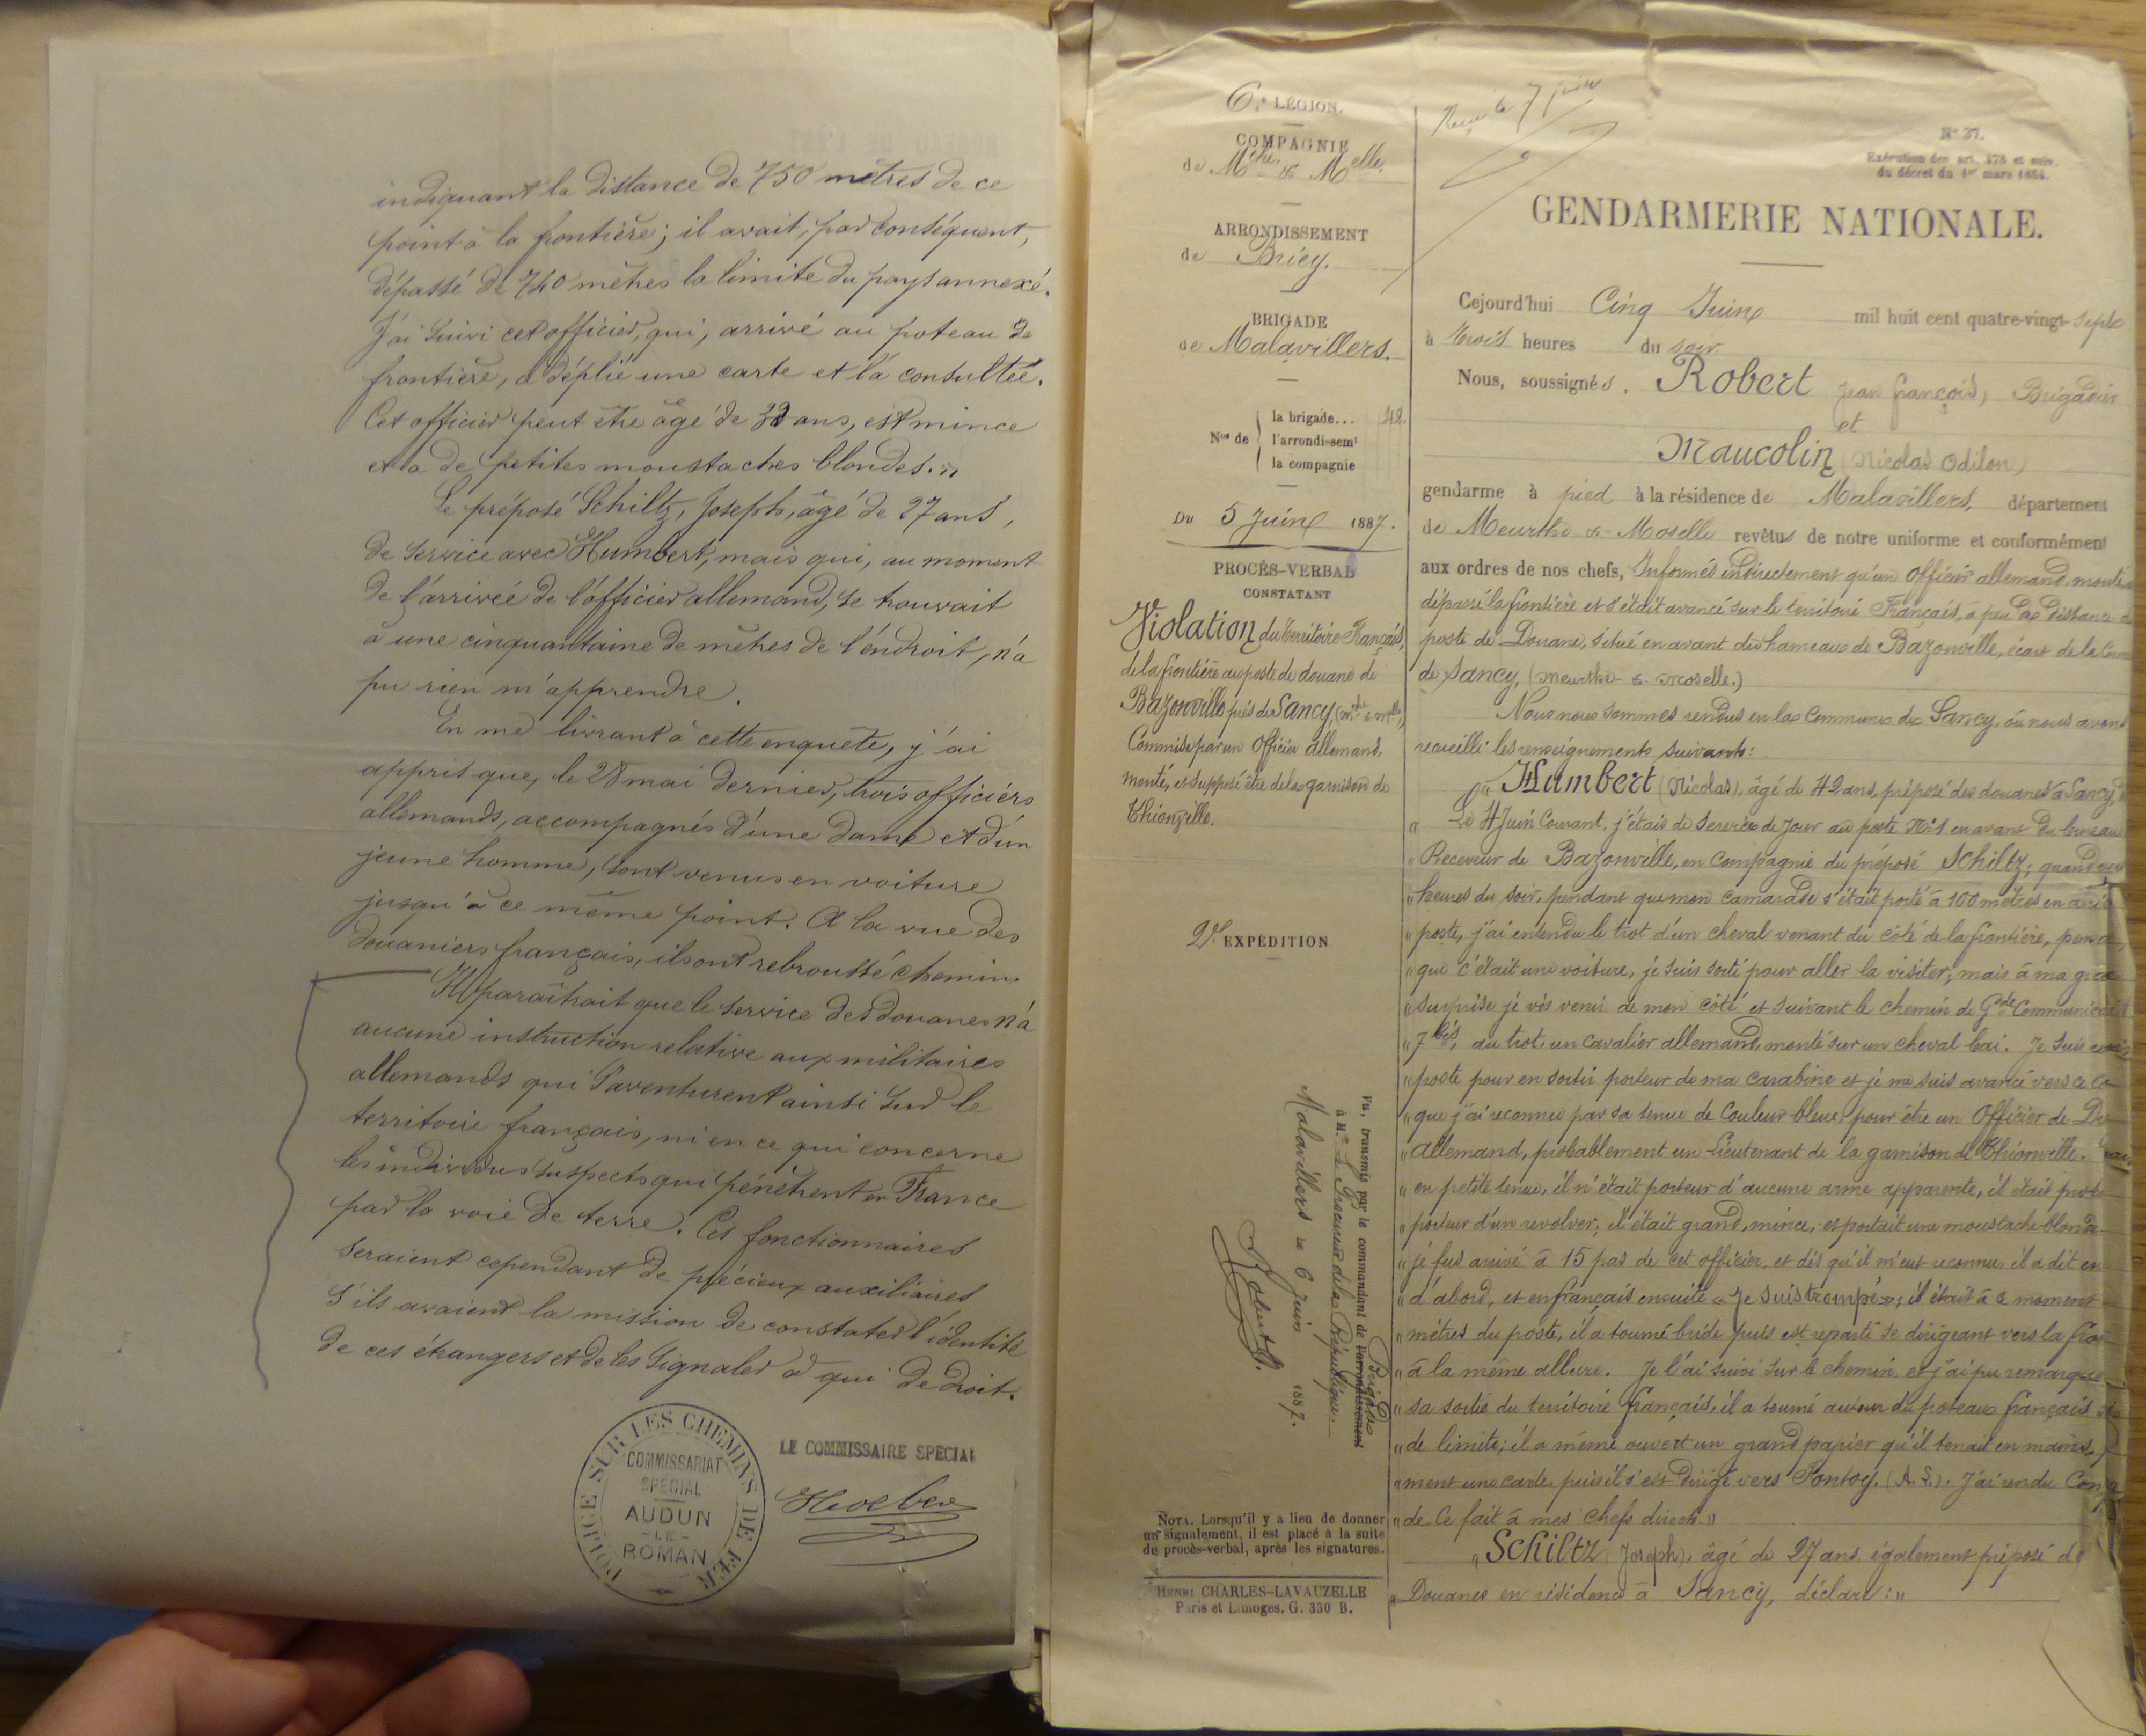 indiquant la distance de 750 mètres de ce
point à la frontière; il avait, par conséquent,
dépassé de 740 mètres la limite du pays annexé.
J'ai suivi cet officier, qui, arrivé au poteau de
frontière, a déplié une carte et l'a consultée.
Cet officier peut être âgé de ans, est mince
et a de petites moustaches blondes. »
Le préposé Schiltz, Joseph, âgé de 27 ans,
de service avec Humbert, mais qui, au moment
de l'arrivée de l'officier allemand, se trouvait
à une cinquantaine de mètres de l'endroit, n'a
pu rien m'apprendre.
En me livrant à cette enquête, j'ai
appris que, le 28 mai dernier, trois officiers
allemands, accompagnés d'une dame et d'un
jeune homme, sont venus en voiture
jusqu'à ce même point. A la vue des
douaniers français, ils ont rebroussé chemin.
Il paraîtrait que le service des douanes n'a
aucune instruction relative aux militaires
allemands qui s'aventurent ainsi sur le
territoire français, ni en ce qui concerne
les individus suspects qui pénètrent en France
par la voie de terre. Ces fonctionnaires
seraient cependant de précieux auxiliaires
s'ils avaient la mission de constater l'identité
de ces étrangers et de les signaler à qui de droit.
POLICE SUR LES CHEMINS DE FER
COMMISSARIAT
SPECIAL
AUDUN
LE
ROMAN
LE COMMISSAIRE SPECIAL
6e LÉGION.
COMPAGNIE
de Mthe & Melle
ARRONDISSEMENT
de Briey.
BRIGADE
de Malavillers.
Nos de
la brigade... 42.
l'arrondissemt
la compagnie
Du 5 Juin 1887.
PROCÈS-VERBAL
CONSTATANT
Violation du territoire Français,
de la frontière au poste de douane de
Bazonville près de Sancy, (Mthe & Melle)
Commise par un Officier allemand,
monté, et supposé être de la garnison de
Thionville.
2e EXPÉDITION
Vu, transmis par le commandant de l'arrondissement Brigade
à M. le Procureur de la République.
Malavillers le 6 Juin 1887.
Robert
NOTA. Lorsqu'il y a lieu de donner
un signalement, il est placé à la suite
du procès-verbal, après les signatures.
HENRI CHARLES-LAVAUZELLE
Paris et Limoges. G. 330 B.
Reçu le 7 juin
N° 37.
Exécution des art. 478 et suiv.
du décret du 1er mars 1854.
GENDARMERIE NATIONALE.
Cejourd'hui Cinq Juin mil huit cent quatre-vingt-sept
à trois heures du soir
Nous, soussignés. Robert Jean François, Brigadier
et
Maucolin (Nicolas Odilon)
gendarme à pied à la résidence de Malavillers, département
de Meurthe-&-Moselle revêtus de notre uniforme et conformément
aux ordres de nos chefs, Informés indirectement qu'un Officier allemand monté
dépassé la frontière et s'était avancé sur le territoire Français, à peu de distance
poste de Douane, situé en avant du hameau de Bazonville, écart de la
de Sancy, (Meurthe-&-Moselle.)
Nous nous sommes rendus en la Commune de Sancy, où nous avons
recueilli les renseignements suivants:
« Humbert (Nicolas), âgé de 42 ans, préposé des douanes à Sancy,
« Le 4 Juin Courant, j'étais de service de Jour au poste N° 1 en avant du bureau
« Receveur de Bazonville, en Compagnie du préposé Schiltz; quand
« heures du soir, pendant que mon camarade s'était porté à 100 mètres en
« poste, j'ai entendu le trot d'un cheval venant du côté de la frontière,
« que c'était une voiture, je suis sorti pour aller la visiter; mais à ma
« surprise je vis venir de mon côté et suivant le chemin de Gde
« 7 bis, au trot, un cavalier allemand, monté sur un cheval bai. Je suis
« poste pour en sortir porteur de ma carabine et je me suis avancé vers
« que j'ai reconnu par sa tenue de Couleur bleue, pour être un Officier de
« Allemand, probablement un Lieutenant de la garnison de Thionville.
« en petite tenue, il n'était porteur d'aucune arme apparente, il était
« porteur d'un revolver; il était grand, mince, et portait une moustache
« je fus arrivé à 15 pas de cet officier, et dès qu'il m'eut reconnu il a dit en
« d'abord, et en français ensuite « Je suis trompé »; il était à ce moment
« mètres du poste, il a tourné bride puis est reparti se dirigeant vers la
« à la même allure. Je l'ai suivi sur le chemin, et j'ai pu remarquer
« sa sortie du territoire français, il a tourné autour du poteau français
« de limite; il a même ouvert un grand papier qu'il tenait en mains,
« ment une carte, puis il s'est dirigé vers Fontoy, (A. L.). J'ai rendu
« de ce fait à mes chefs directs. »
« Schiltz (Joseph), âgé de 27 ans, également préposé de
« Douanes en résidence à Sancy, déclare: »